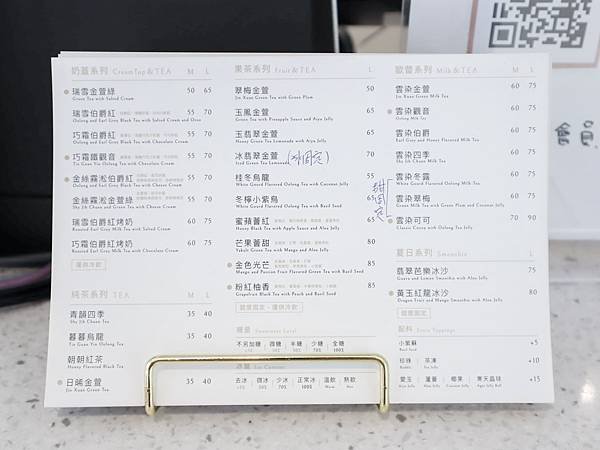 奶蓋系列 Cream Top & TEA M L
瑞雪金萱綠 50 65
Green Tea with Salted Cream
瑞雪伯爵紅 55 70
Oolong and Earl Grey Black Tea with Salted Cream and Oreo
巧霜伯爵紅 55 70
Oolong and Earl Grey Black Tea with Chocolate Cream
巧霜鐵觀音 55 70
Tie Guan Yin Oolong Tea with Chocolate Cream
金絲霧淞伯爵紅 55 70
Oolong and Earl Grey Black Tea with Cheese Cream
金絲霧淞金萱綠 55 70
Shy Jih Chuen Tea and Green Tea with Cheese Cream
瑞雪伯爵紅烤奶 60 75
Roasted Earl Grey Milk Tea with Salted Cream
巧霜伯爵紅烤奶 60 75
Roasted Earl Grey Milk Tea with Chocolate Cream
僅供冷飲
純茶系列 TEA M L
青韻四季 35 40
Shy Jih Chuen Tea
暮暮烏龍 35 40
Tie Guan Yin Oolong Tea
朝朝紅茶 35 40
Honey Flavored Black Tea
日晞金萱 35 40
Jin Xuan Green Tea
果茶系列 Fruit & TEA L
翠梅金萱 50
Jin Xuan Green Tea with Green Plum
玉鳳金萱 65
Green Tea with Pineapple Sauce and Aiyu Jelly
玉翡翠金萱 65
Honey Green Tea Lemonade with Aiyu Jelly
冰翡翠金萱 (冰固定) 70
Iced Green Tea Lemonade
桂冬烏龍 55
White Gourd Flavored Oolong Tea with Coconut Jelly
冬檸小紫烏 65
White Gourd Flavored Oolong Tea with Basil Seed
蜜蘋薈紅 65
Honey Black Tea with Apple Sauce and Aloe Jelly
芒果薈甜 80
Yakult Green Tea with Mango and Aloe Jelly
金色光芒 85
Mango and Passion Fruit Flavored Green Tea with Basil Seed
粉紅柚香 85
Grapefruit Black Tea with Peach and Basil Seed
甜固定
甜度固定・僅供冷飲
糖量 Sweetness Level
不另加糖 微糖 半糖 少糖 全糖
冰量 Ice Content
去冰 微冰 少冰 正常冰 溫飲 熱飲
歐蕾系列 Milk & TEA M L
雲染金萱 60 75
Jin Xuan Green Milk Tea
雲染觀音 60 75
Oolong Milk Tea
雲染伯爵 60 75
Earl Grey and Honey Flavored Milk Tea
雲染四季 60 75
Shy Jih Chuen Milk Tea
雲染冬露 60 75
White Gourd Flavored Oolong Milk Tea
雲染翠梅 60 75
Green Milk Tea with Green Plum and Coconut Jelly
雲染可可 70 90
Classic Cocoa with Oolong Tea
夏日系列 Smoothie L
翡翠芭樂冰沙 75
Guava and Lemon Smoothie with Aloe Jelly
黃玉紅龍冰沙 80
Dragon Fruit and Mango Smoothie with Aloe Jelly
甜度固定
配料 Extra Toppings
小紫蘇 +5
Basil Seed
珍珠 茶凍 +10
Bubble Tea Jelly
愛玉 蘆薈 椰果 寒天晶球 +15
Aiyu Jelly Aloe Jelly Coconut Jelly Agar Ball